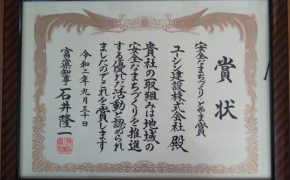 賞状
安全なまちづくりとやま賞
ユーシン建設株式会社 殿
貴社の取組みは地域の
安全なまちづくりを推進
する優れた活動と認められ
ましたのでこれを賞します
令和二年九月三十日
富山県知事 石井隆一